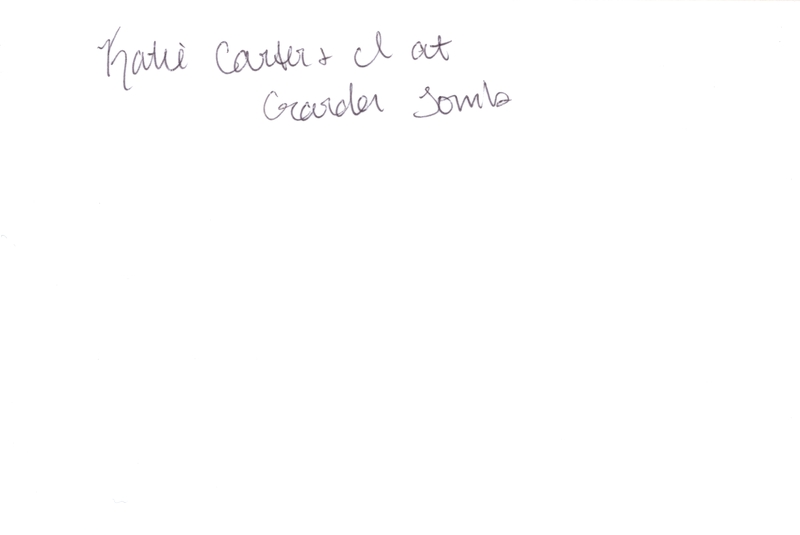 Katie Carter + I at
Garden Tomb